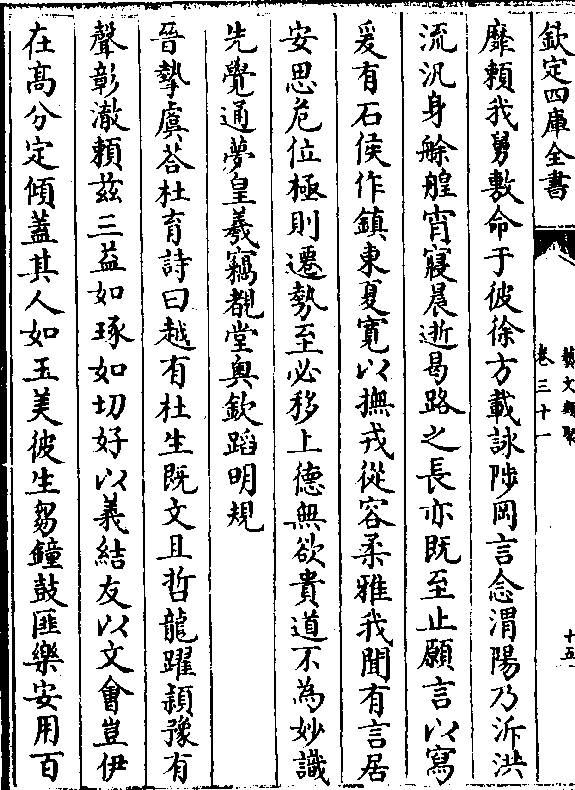 欽定四庫全書
藝文類聚
卷三十一
十五
靡賴我舅敷命于彼徐方載詠陟岡言念渭陽乃泝洪
流汎身艅艎宵寢晨逝曷路之長亦既至止願言以寫
爰有石侯作鎮東夏寛以撫戎從容柔雅我聞有言居
安思危位極則遷勢至必移上德無欲貴道不為妙識
先覺通夢皇羲竊覩堂奥欽蹈明規
晉摯虞荅杜育詩曰越有杜生既文且哲龍躍穎豫有
聲彰澈賴兹三益如琢如切好以義結友以文會豈伊
在髙分定傾蓋其人如玉美彼生芻鐘鼓匪樂安用百